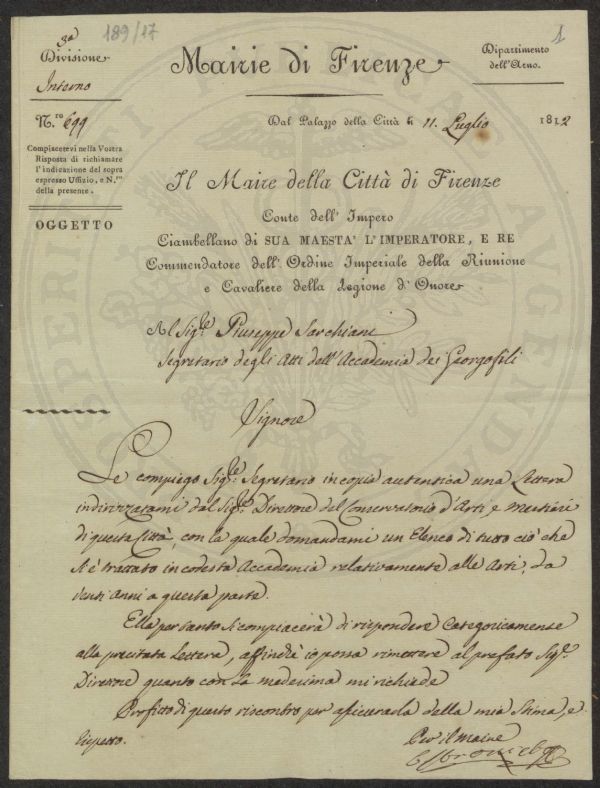 189/17
1
3a
Divisione
Interno
Mairie di Firenze
Dipartimento
dell'Arno.
N.ro 699
Dal Palazzo della Città li 11. Luglio 1812
Compiacetevi nella Vostra
Risposta di richiamare
l'indicazione del sopra
espresso Uffizio, e N.ro
della presente.
OGGETTO
Il Maire della Città di Firenze
Conte dell'Impero
Ciambellano di SUA MAESTA' L'IMPERATORE, E RE
Commendatore dell'Ordine Imperiale della Riunione
e Cavaliere della Legione d'Onore
Al Sig.re Giuseppe Sarchiani
Segretario degli Atti dell'Accademia dei Georgofili
Signore
Le compiego Sig.re Segretario in copia autentica una Lettera
indirizzatami dal Sig.re Direttore del Conservatorio d'Arti, e Mestieri
di questa Città, con la quale domandami un Elenco di tutto ciò che
si è trattato in codesta Accademia relativamente alle Arti, da
venti anni a questa parte.
Ella pertanto si compiacerà di rispondere Categoricamente
alla precitata Lettera, affinchè io possa rimettere al prefato Sig.re
Direttore quanto con la medesima mi richiede
Profitto di questo riscontro per assicurarla della mia Stima, e
Rispetto.
Per il Maire